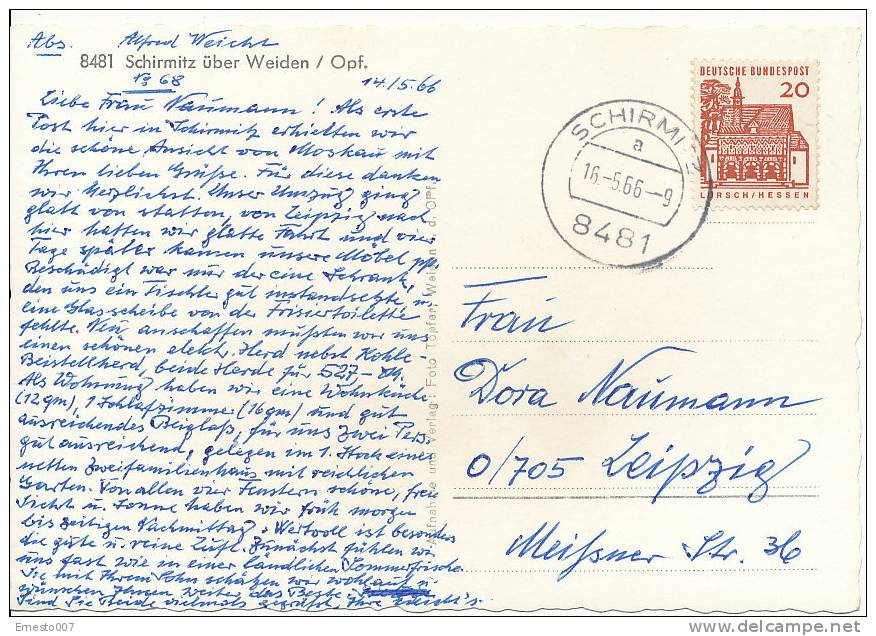 Abs. Alfred Weicht
8481 Schirmitz über Weiden / Opf.
No 68
14./5.66
Liebe Frau Naumann! Als erste
Post hier in Schirmitz erhielten wir
die schöne Ansicht von Moskau mit
Ihrem lieben Grüße. Für diese danken
wir herzlichst. Unser Umzug ging
glatt von statten, von Leipzig nach
hier hatten wir glatte Fahrt und vier
Tage später kamen unsere Möbel
Beschädigt war nur der eine Schrank,
den uns ein Tischler gut instandsetzte, u.
eine Glasscheibe von der Frisiertoilette
fehlte. Neu anschaffen mußten wir uns
einen schönen elektr. Herd nebst Kohle-
Beistellherd, beide Herde für 527.- DM.
Als Wohnung haben wir eine Wohnküche
(12qm), 1 Schlafzimmer (16qm) und gut
ausreichendes Beigelaß, für uns zwei Pers.
gut ausreichend, gelegen im 1. Stock eines
netten Zweifamilienhaus mit reichlichen
Garten. Von allen vier Fenstern schöne, freie
Sicht u. Sonne haben wir früh morgen
bis zeitigen Nachmittag. Wertvoll ist besonders
die gute u. reine Luft. Zunächst fühlen wir
uns fast wie in einer ländlichen Sommerfrische.
Sie mit Ihrem Sohn schätzen wir wohlauf u.
wünschen Ihnen weiter das Beste.
Sind Sie Beide vielmals gegrüßt, Ihre Weicht's
Aufnahme und Verlag: Foto Töpfer, Weiden i. d. OPf.
DEUTSCHE BUNDESPOST
20
LORSCH/HESSEN
SCHIRMITZ
a
16.-5.66.-9
8481
Frau
Dora Naumann
0/705 Leipzig
Meißner Str. 36
Ernesto007
delcampe.net